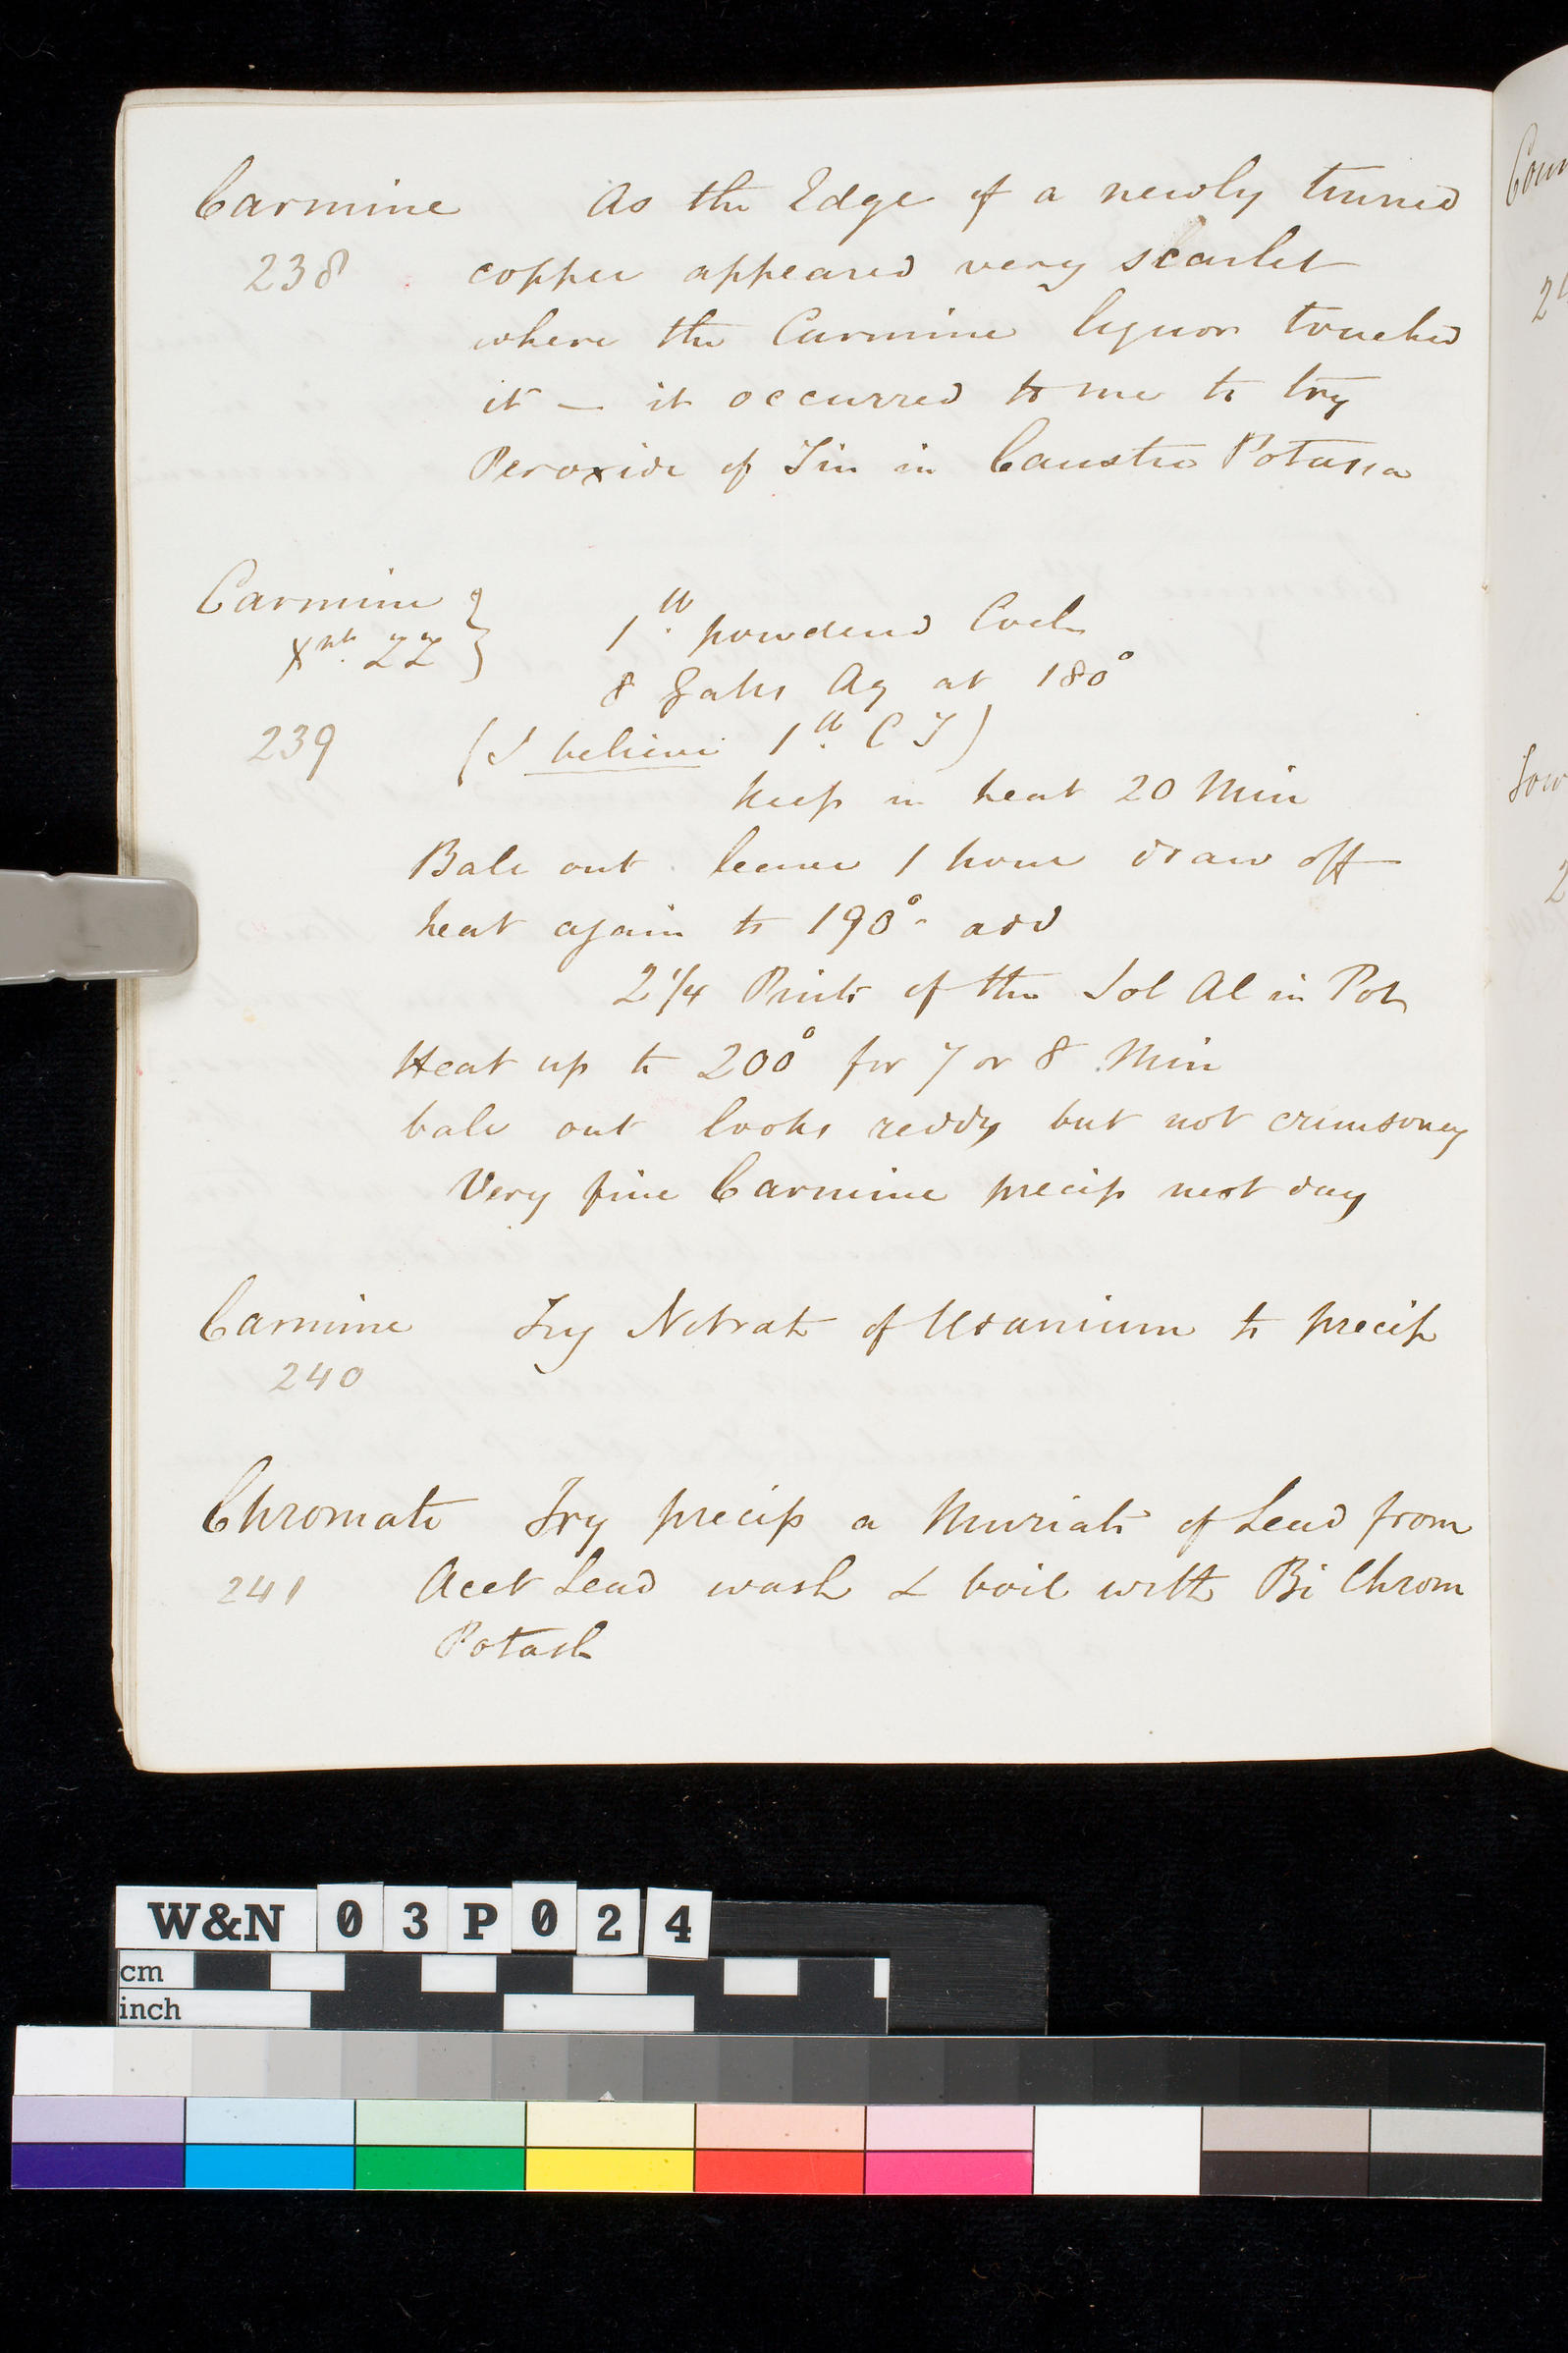 Carmine As the Edge of a newly tinned
238 copper appeared very scarlet
where the Carmine liquor touched
it — it occurred to me to try
Peroxide of Tin in Caustic Potassa
Carmine } 1 lb. powdered Coch
Xpt. ZZ } 8 Galls Aq at 180°
239 (I believe 1 lb. C T)
Keep in heat 20 Min
Bale out leave 1 hour draw off
heat again to 190° add
2 1/4 Pints of the Sol Al in Pot
Heat up to 200° for 7 or 8 Min
bale out looks reddy but not crimsoney
Very fine Carmine precip next day
Carmine Try Nitrate of Uranium to precip
240
Chromate Try precip a Muriate of Lead from
241 Acet Lead wash & boil with Bi Chrom
Potash
W&N 03P024
cm
inch